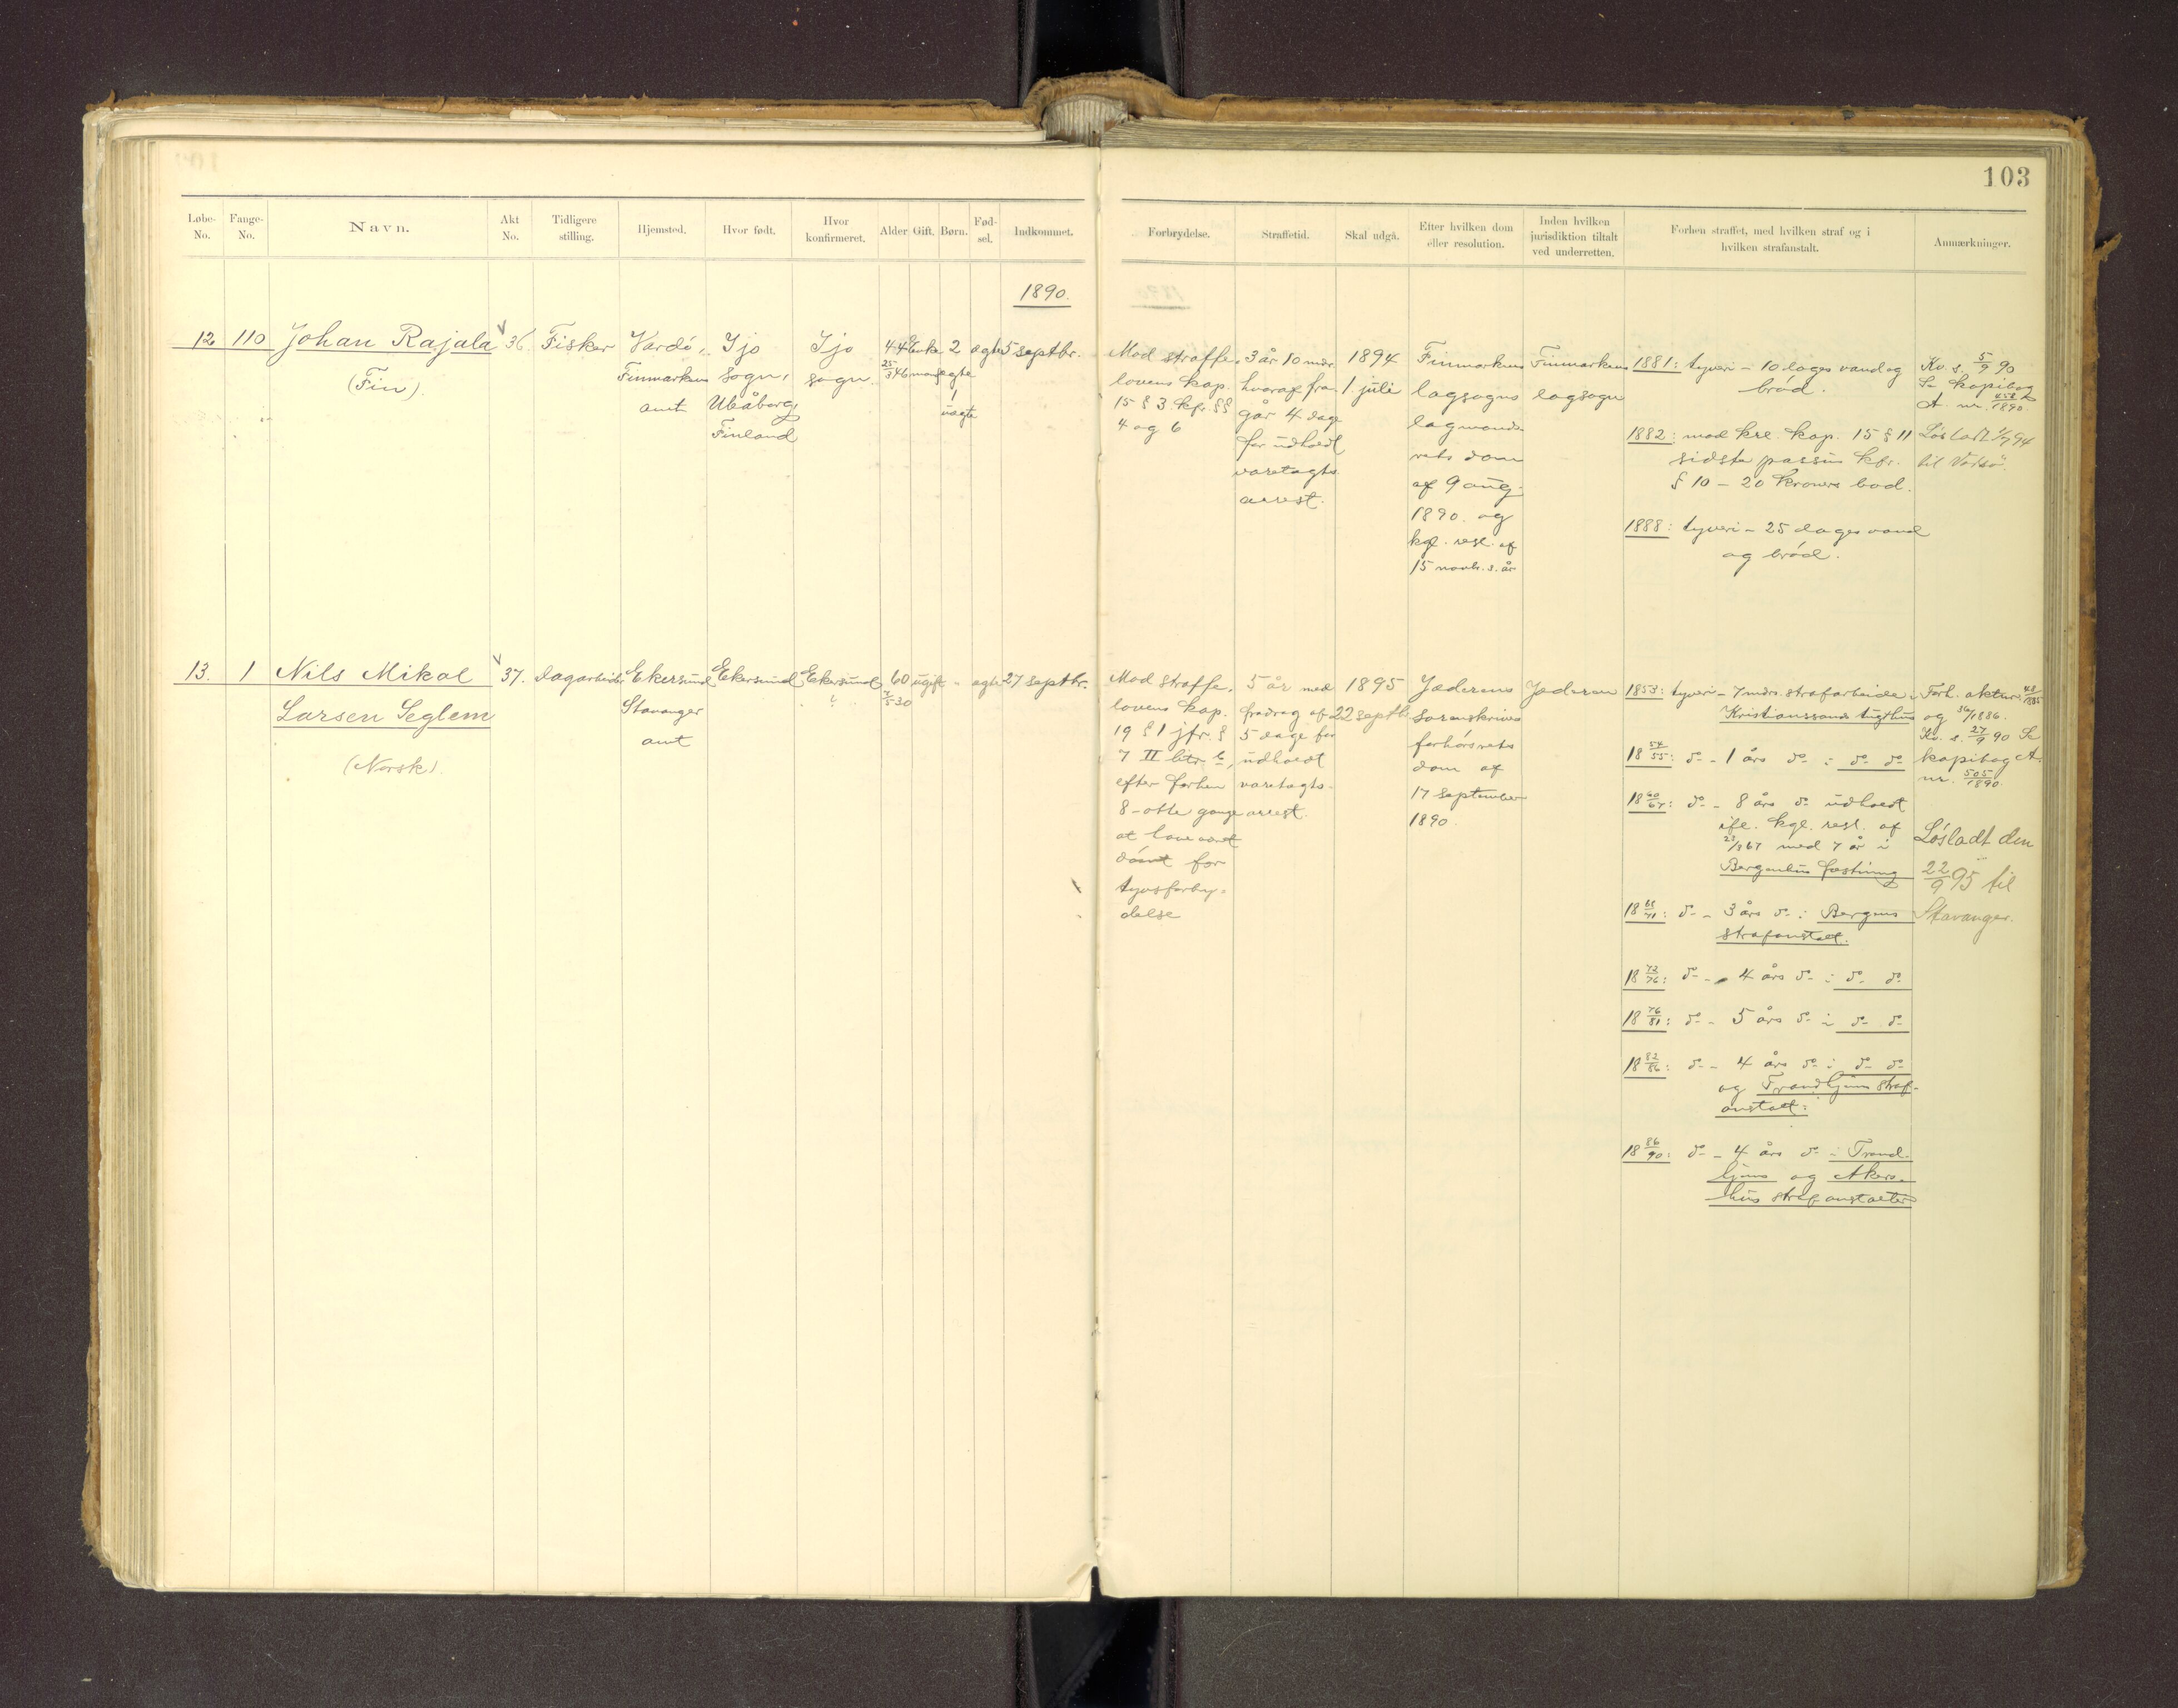 103
Løbe-No. Fange-No. Navn. Akt No. Tidligere stilling. Hjemsted. Hvor født. Hvor konfirmeret. Alder. Gift. Børn. Fødsel. Indkommet.
Forbrydelse. Straffetid. Skal udgå. Efter hvilken dom eller resolution. Inden hvilken jurisdiktion tiltalt ved underretten. Forhen straffet, med hvilken straf og i hvilken strafanstalt. Anmærkninger.
1890.
12 110 Johan Rajala 36. Fisker
(Fin).
Vardö,
Finmarkens
amt
Ijo
sogn,
Uleåborg
Finland
Ijo
sogn.
44
25/3 46
enke
mand
2
ægte
1
uægte
ægte
5 septbr.
Mod straffe-
lovens kap.
15 § 3 kfr. §§
4 og 6
3 år 10 mdr.
hvoraf fra-
går 4 dage
for udholdt
varetægts-
arrest.
1894
1 juli
Finmarkens
lagsogns
lagmands-
rets dom
af 9 aug.
1890 og
kgl. resl. af
15 novbr. s. år
Finmarkens
lagsogn
1881: tyveri – 10 dages vand og
brød.
1882: mod krl. kap. 15 § 11
sidste passus kfr.
§ 10 – 20 kroners bod.
1888: tyveri – 25 dages vand
og brød.
Kv. s. 5/9 90
Se kopibog
A. nr. 1890.
Løsladt 1/7 94
til Vadsø.
13. 1 Nils Mikal 37. dagarbeider
Larsen Seglem
(Norsk).
Ekersund
Stavanger
amt
Ekersund
Ekersund
60
5 30
ugift
"
ægte
27 septbr.
Mod straffe-
lovens kap.
19 § 1 jfr. §
7 II litr.
efter forhen
8 – otte gange
at have været
dømt for
tyvsforbry-
delse
5 år med
fradrag af
5 dage for
udholdt
varetægts-
arrest.
1895
22 septbr.
Jæderens
sorenskriver
forhørsrets
dom af
17 september
1890.
Jæderen
1853: tyveri – 7 mdrs. strafarbeide i
Kristianssands tugthus
18 54/55: do – 1 års do i do do
18 60/67: do – 8 års do udholdt
ifl. kgl. resl. af
67 med 7 år i
Bergenhus fæstning
18 68/71: do – 3 års do i Bergens
strafanstalt.
18 72/76: do – 4 års do i do do
18 76/81: do – 5 års do i do do
18 82/86: do – 4 års do i do do
og Trondhjems straf-
anstalt.
18 86/90: do – 4 års do i Trond-
hjems og Akers-
hus strafanstalter
Forh. aktnr.
og 36/1886.
Kv. s. 27/9 90 Se
kopibog A.
nr. 505/1890
Løsladt den
22/9 95 til
Stavanger.